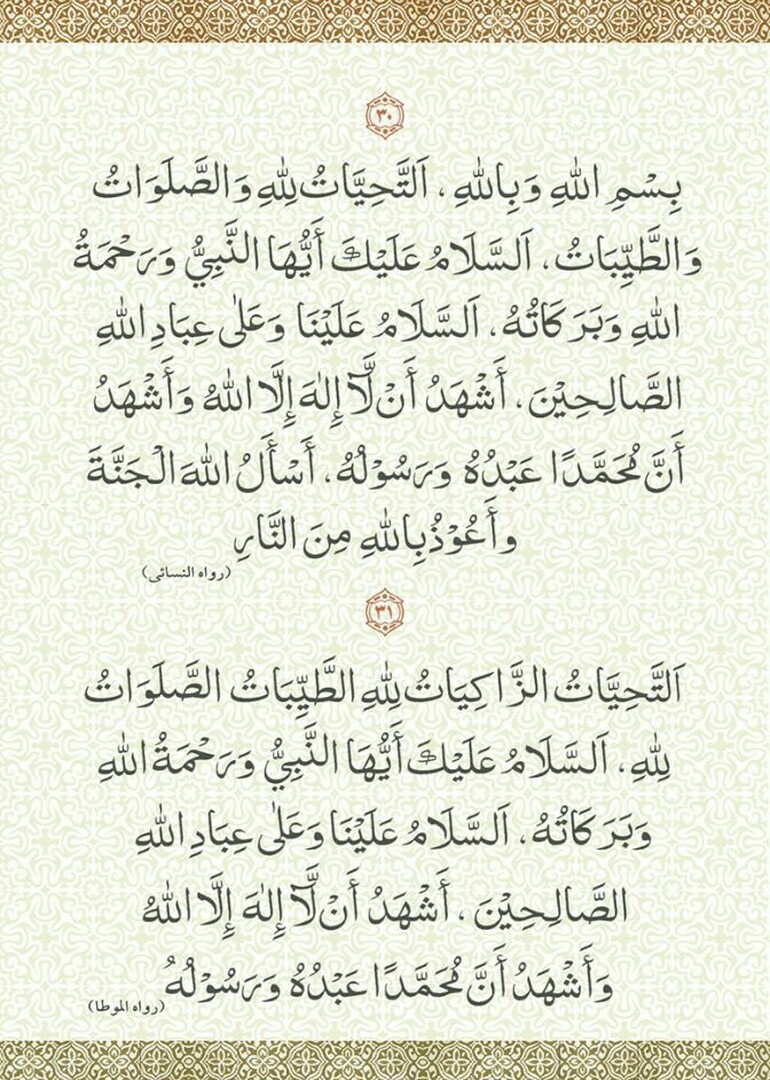 ٣٠
بِسْمِ اللهِ وَبِاللهِ ، اَلتَّحِيَّاتُ لِلّٰهِ وَالصَّلَوَاتُ
وَالطَّيِّبَاتُ، اَلسَّلَامُ عَلَيْكَ أَيُّهَا النَّبِيُّ وَرَحْمَةُ
اللهِ وَبَرَكَاتُهُ، اَلسَّلَامُ عَلَيْنَا وَعَلٰى عِبَادِ اللهِ
الصَّالِحِيْنَ، أَشْهَدُ أَنْ لَّآ إِلٰهَ إِلَّا اللهُ وَأَشْهَدُ
أَنَّ مُحَمَّدًا عَبْدُهُ وَرَسُوْلُهُ، أَسْأَلُ اللهَ الْجَنَّةَ
وأَعُوْذُ بِاللهِ مِنَ النَّارِ
(رواه النسائی)
٣١
اَلتَّحِيَّاتُ الزَّاكِيَاتُ لِلّٰهِ الطَّيِّبَاتُ الصَّلَوَاتُ
لِلّٰهِ، اَلسَّلَامُ عَلَيْكَ أَيُّهَا النَّبِيُّ وَرَحْمَةُ اللهِ
وَبَرَكَاتُهُ، اَلسَّلَامُ عَلَيْنَا وَعَلٰى عِبَادِ اللهِ
الصَّالِحِيْنَ ، أَشْهَدُ أَنْ لَّآ إِلٰهَ إِلَّا اللهُ
وَأَشْهَدُ أَنَّ مُحَمَّدًا عَبْدُهُ وَرَسُوْلُهُ
(رواه الموطا)